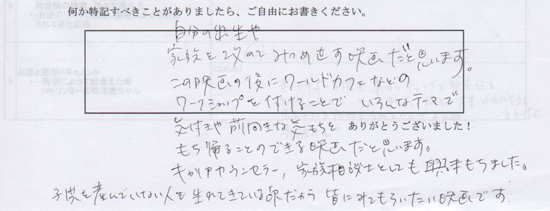 何か特記すべきことがありましたら、ご自由にお書きください。
自分の出生や
家族を改めてみつめ直す映画だと思います。
この映画の後にワールドカフェなどの
ワークショップを付けることで いろんなテーマで
気付きや前向きな気もちを
ありがとうございました!
もち帰ることのできる映画だと思います。
キャリアカウンセラー、家族相談士としても興味もちました。
子供を産んでいない人も生れてきている訳だから 皆にみてもらいたい映画です